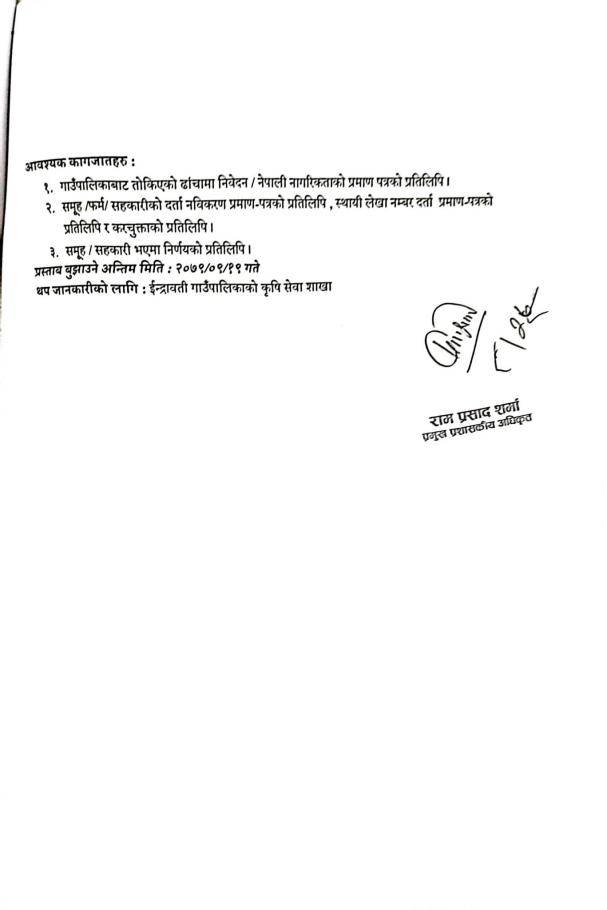 आवश्यक कागजातहरु :
१. गाउँपालिकाबाट तोकिएको ढांचामा निवेदन / नेपाली नागरिकताको प्रमाण पत्रको प्रतिलिपि ।
२. समूह /फर्म/ सहकारीको दर्ता नविकरण प्रमाण-पत्रको प्रतिलिपि , स्थायी लेखा नम्बर दर्ता प्रमाण-पत्रको
प्रतिलिपि र करचुक्ताको प्रतिलिपि ।
३. समूह / सहकारी भएमा निर्णयको प्रतिलिपि ।
प्रस्ताव बुझाउने अन्तिम मिति : २०७९/०९/१९ गते
थप जानकारीको लागि : ईन्द्रावती गाउँपालिकाको कृषि सेवा शाखा
राम प्रसाद शर्मा
प्रमुख प्रशासकीय अधिकृत